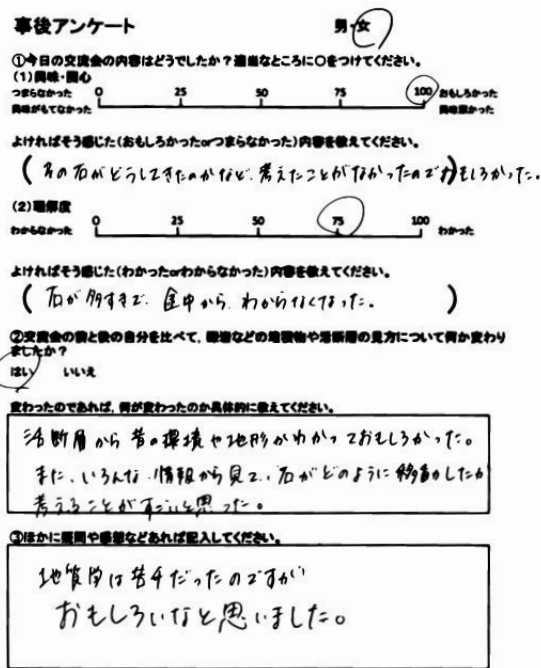 事後アンケート 男・女
①今日の交流会の内容はどうでしたか？適当なところに○をつけてください。
(1)興味・関心
つまらなかった 0 25 50 75 100 おもしろかった
興味がもてなかった 興味深かった
よければそう感じた(おもしろかったorつまらなかった)内容を教えてください。
(その石がどうしてきたのかなど、考えたことがなかったので)おもしろかった。
(2)理解度
0 25 50 75 100
わからなかった わかった
よければそう感じた(わかったorわからなかった)内容を教えてください。
(石が多すぎて、途中から、わからなくなった。)
②交流会の前と後の自分を比べて、の堆積物や活断層の見方について何か変わり
ましたか？
はい いいえ
変わったのであれば、何が変わったのか具体的に教えてください。
活断層から昔の環境や地形がわかっておもしろかった。
また、いろんな情報から見て、石がどのように移動したか
考えることがすごいと思った。
③ほかに疑問や感想などあれば記入してください。
地質学は苦手だったのですが
おもしろいなと思いました。